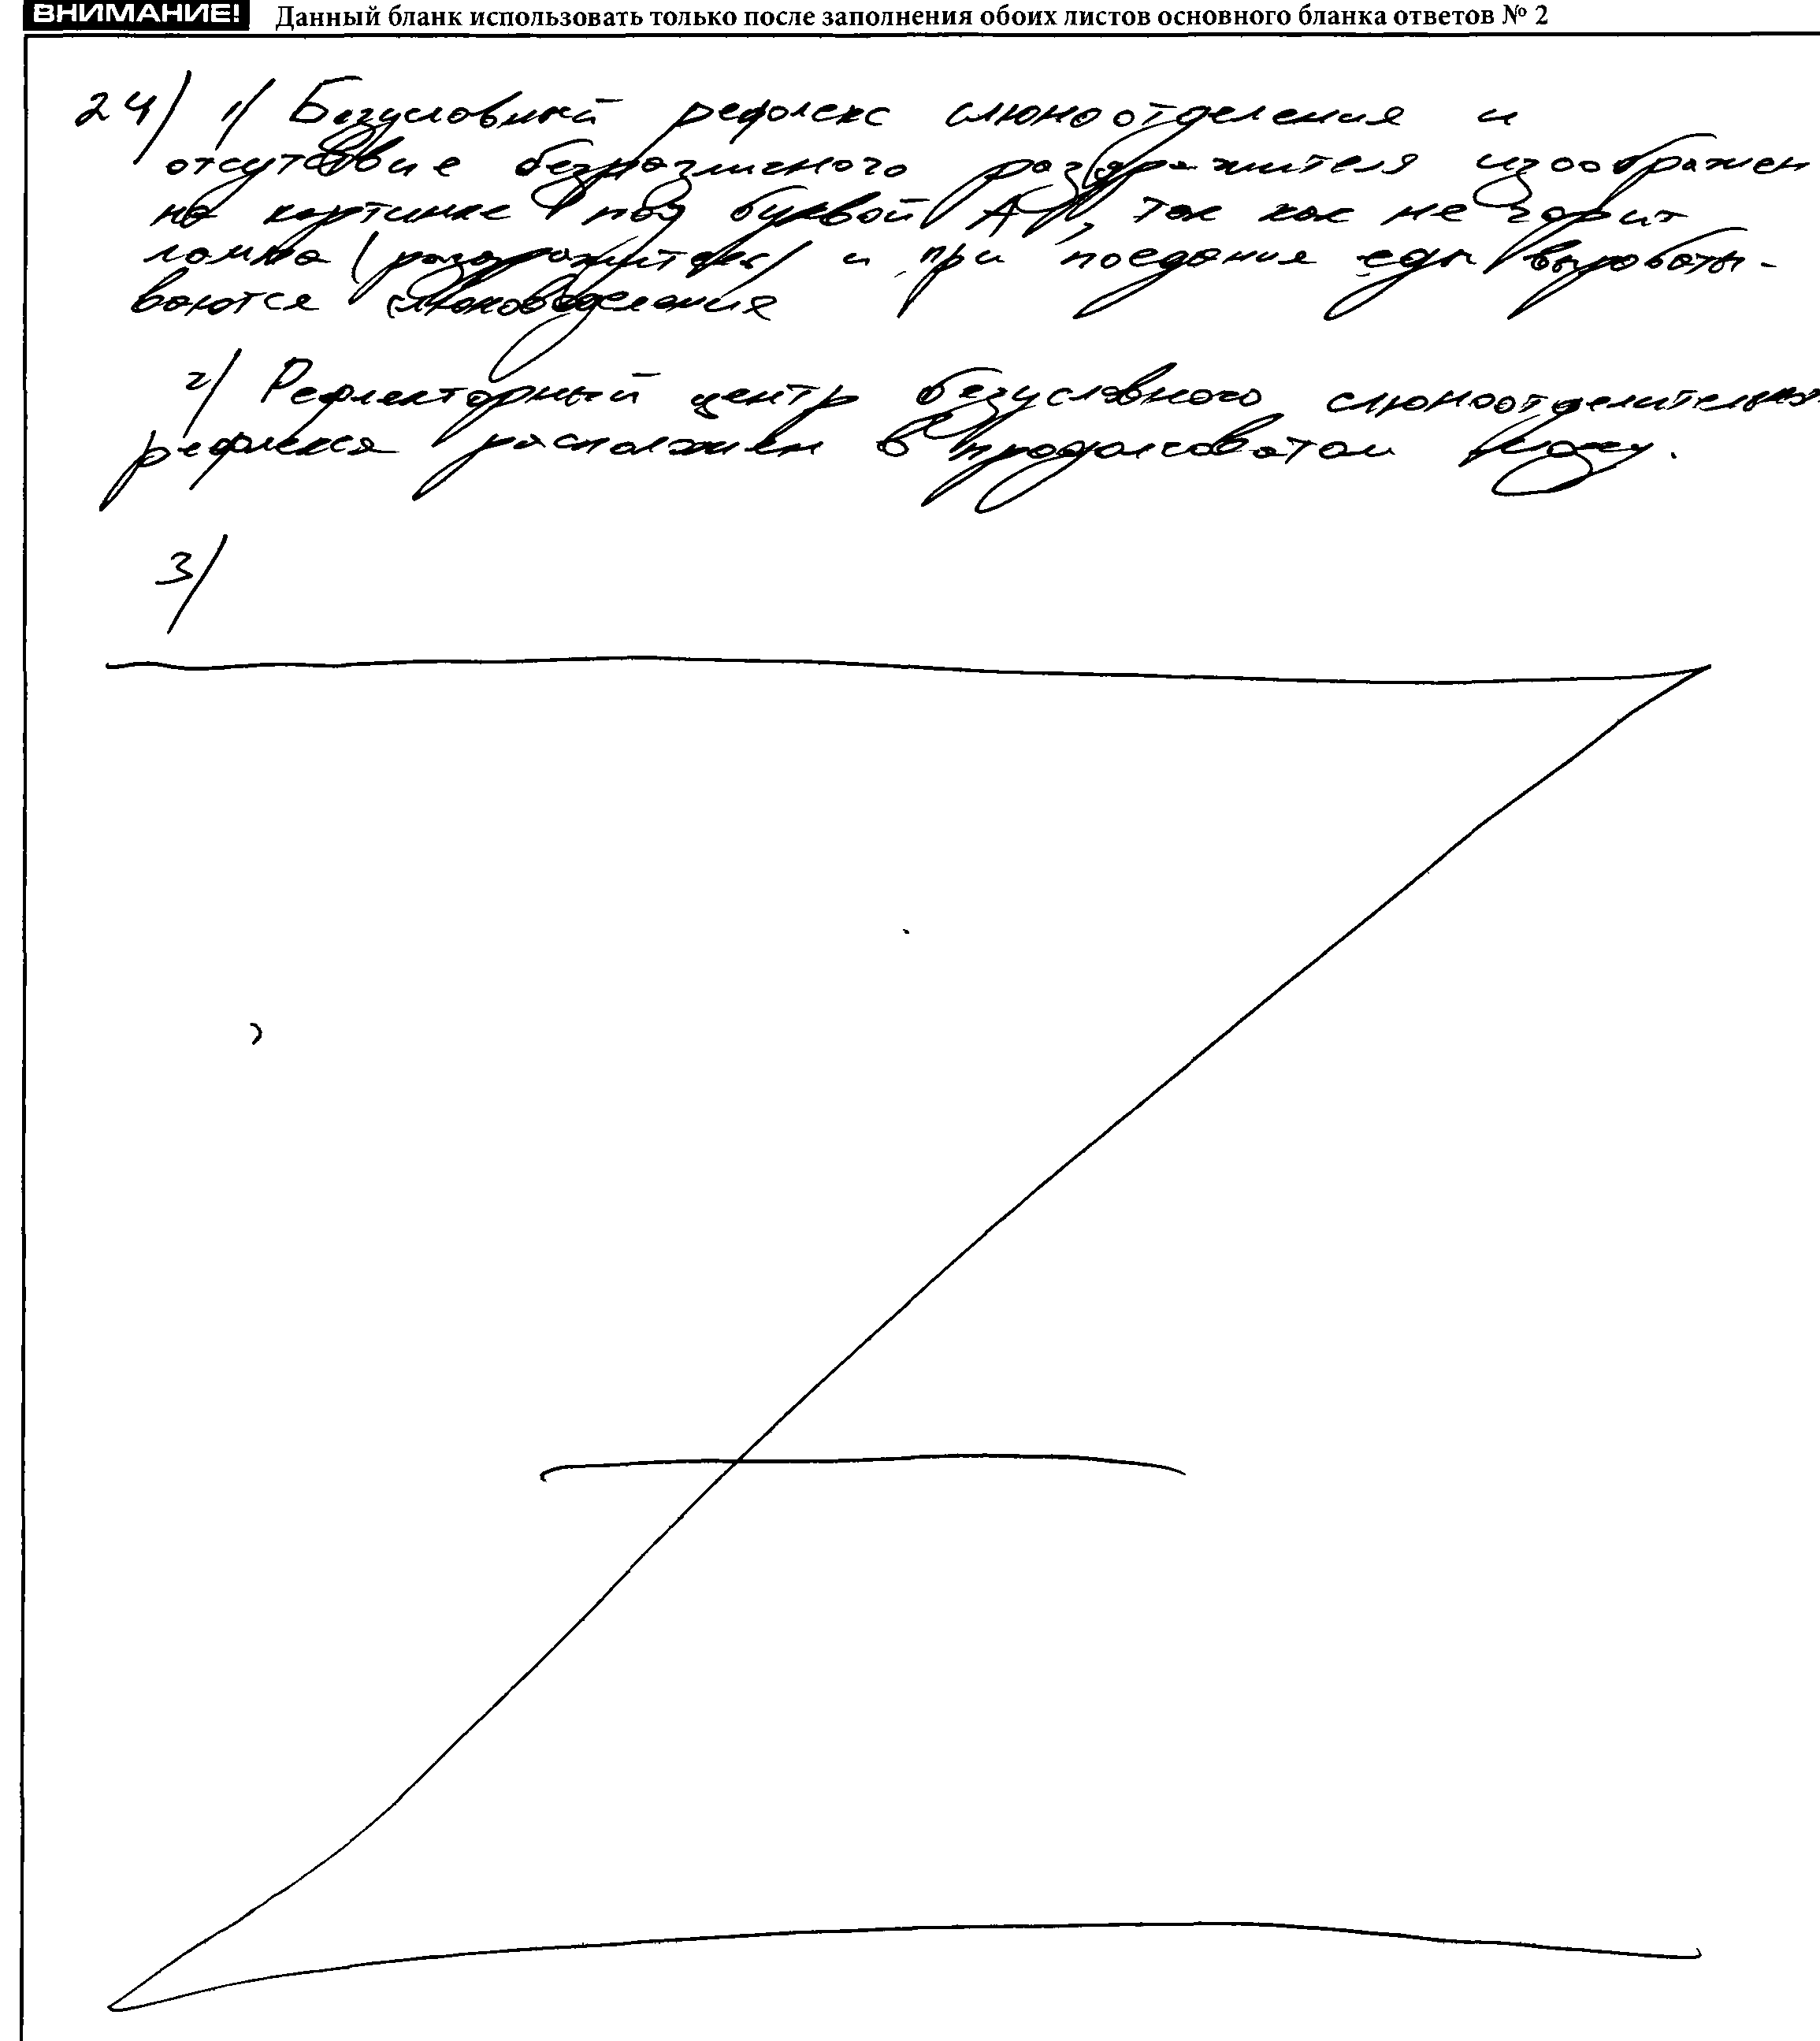 ВНИМАНИЕ! Данный бланк использовать только после заполнения обоих листов основного бланка ответов № 2
24) 1) Безусловный рефлекс слюноотделения и
отсутствие безразличного раздражителя изоображен
на картинке под буквой А, так как не горит
лампа (раздражитель) и при поедания еды вырабаты-
ваются слюноотделения
2) Рефлекторный центр безусловного слюноотделительного
рефлекса расположен в продолговатом мозгу.
3)